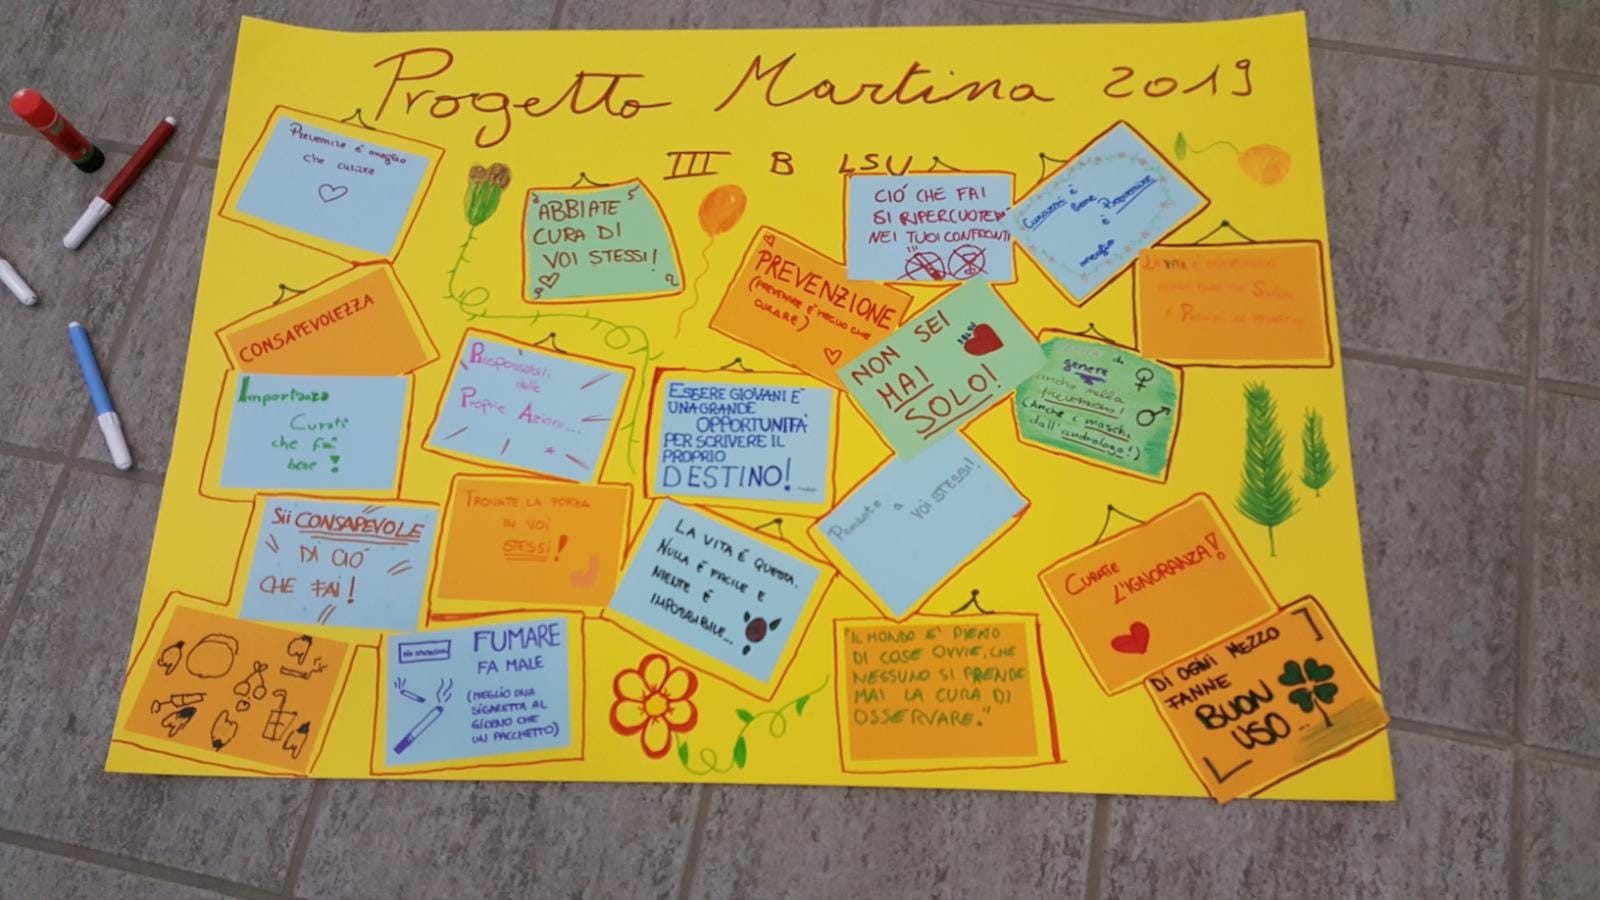 Progetto Martina 2019
III B LSU
Prevenire è meglio
che curare
ABBIATE
CURA DI
VOI STESSI!
CIÓ CHE FAI
SI RIPERCUOTERA'
NEI TUOI CONFRONTI
!!!
Curarsi è
bene
è Prevenire
meglio
PREVENZIONE
(PREVENIRE È MEGLIO CHE
CURARE)
LA VITA È IMPORTANTE
CONSAPEVOLEZZA
NON SEI
MAI
SOLO!
di
genere
anche nella
prevenzione!
(Anche i maschi
dall'andrologo!)
Importanza
Curati
che fa
bene!
Responsabili
delle
Proprie Azioni...
ESSERE GIOVANI E'
UNA GRANDE
OPPORTUNITÀ
PER SCRIVERE IL
PROPRIO
DESTINO!
Pensate a VOI STESSI!
Sii CONSAPEVOLE
DI CIÓ
CHE FAI!
TROVATE LA FORZA
IN VOI
STESSI!
LA VITA È QUESTA.
NULLA È FACILE E
NIENTE È
IMPOSSIBILE...
CURATE
L'IGNORANZA!
NO SMOKING
FUMARE
FA MALE
(MEGLIO UNA
SIGARETTA AL
GIORNO CHE
UN PACCHETTO)
"IL MONDO E' PIENO
DI COSE OVVIE, CHE
NESSUNO SI PRENDE
MAI LA CURA DI
OSSERVARE."
DI OGNI MEZZO
FANNE
BUON
USO...